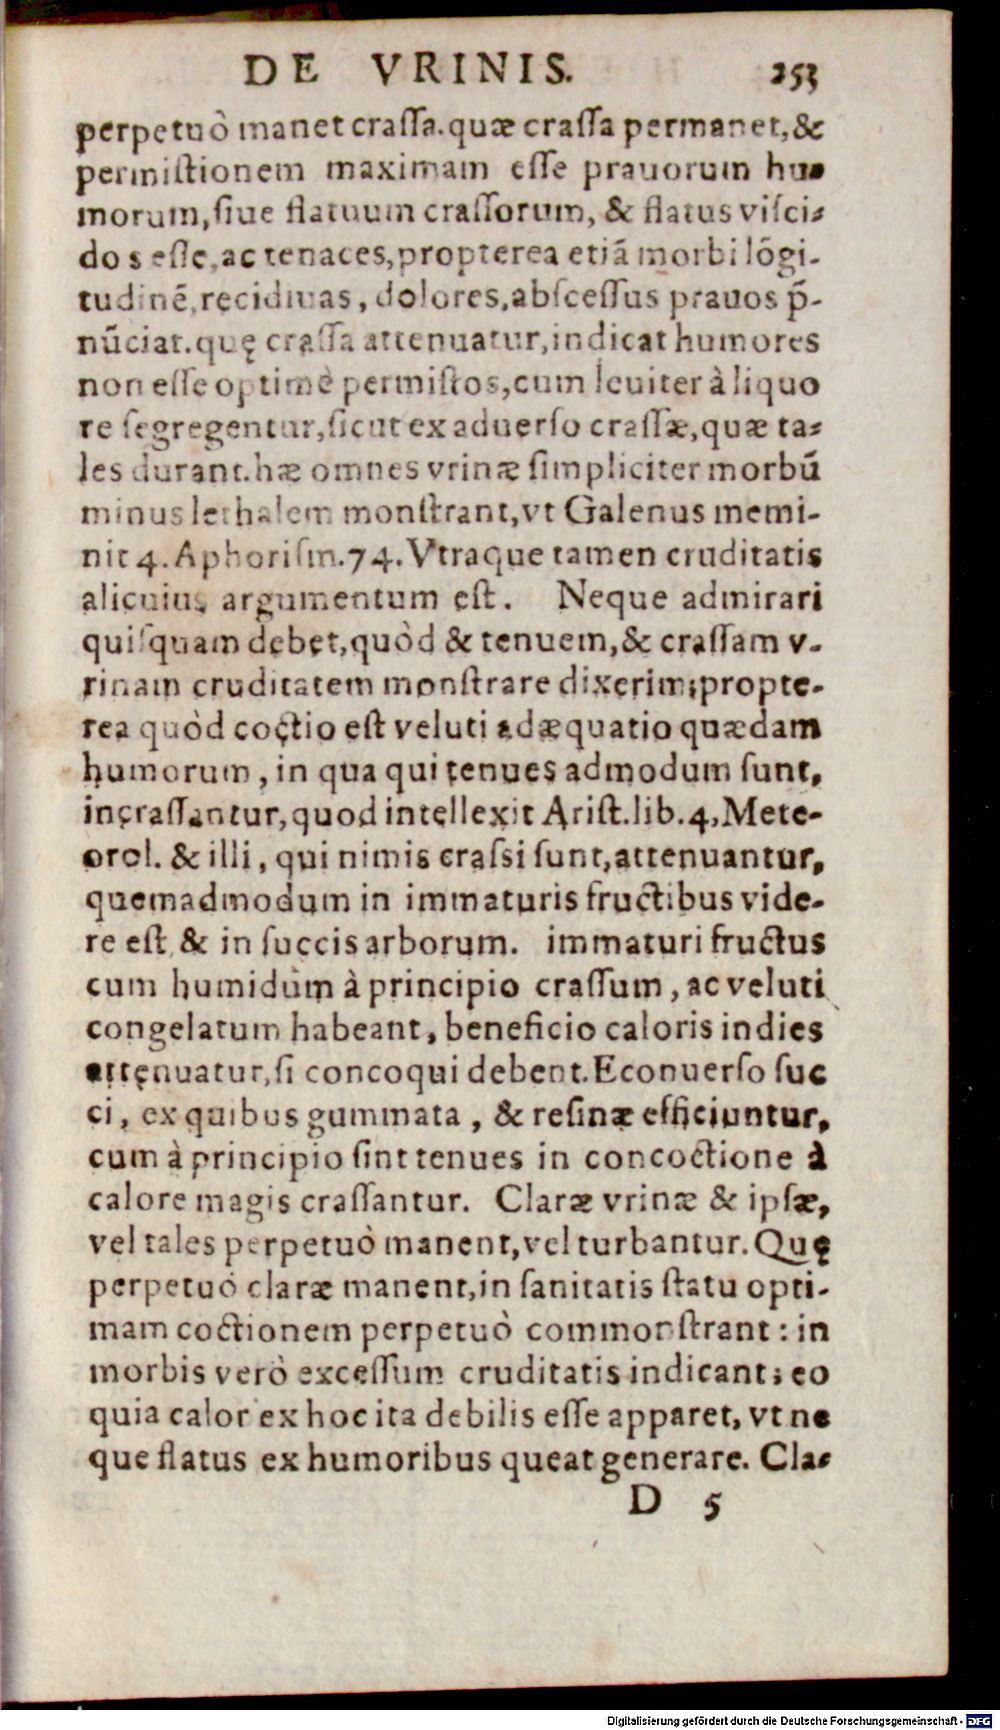 DE VRINIS. 253
perpetuò manet crassa. quæ crassa permanet, &
permistionem maximam esse prauorum hu-
morum, siue flatuum crassorum, & flatus visci-
dos esse, ac tenaces, propterea etiã morbi lõgi-
tudinẽ, recidiuas, dolores, abscessus prauos p̃-
nũciat. quę crassa attenuatur, indicat humores
non esse optimè permistos, cum leuiter à liquo
re segregentur, sicut ex aduerso crassæ, quæ ta-
les durant. hæ omnes vrinæ simpliciter morbũ
minus lethalem monstrant, vt Galenus memi-
nit 4. Aphorism. 74. Vtraque tamen cruditatis
alicuius argumentum est. Neque admirari
quisquam debet, quòd & tenuem, & crassam v-
rinam cruditatem monstrare dixerim; propte-
rea quòd coctio est veluti adæquatio quædam
humorum, in qua qui tenues admodum sunt,
incrassantur, quod intellexit Arist. lib. 4, Mete-
orol. & illi, qui nimis crassi sunt, attenuantur,
quemadmodum in immaturis fructibus vide-
re est, & in succis arborum. immaturi fructus
cum humidum à principio crassum, ac veluti
congelatum habeant, beneficio caloris indies
attenuatur, si concoqui debent. Econuerso suc
ci, ex quibus gummata, & resinæ efficiuntur,
cum à principio sint tenues in concoctione à
calore magis crassantur. Claræ vrinæ & ipsæ,
vel tales perpetuò manent, vel turbantur. Quę
perpetuò claræ manent, in sanitatis statu opti-
mam coctionem perpetuò commonstrant: in
morbis verò excessum cruditatis indicant; eo
quia calor ex hoc ita debilis esse apparet, vt ne
que flatus ex humoribus queat generare. Cla-
D 5
Digitalisierung gefördert durch die Deutsche Forschungsgemeinschaft - DFG